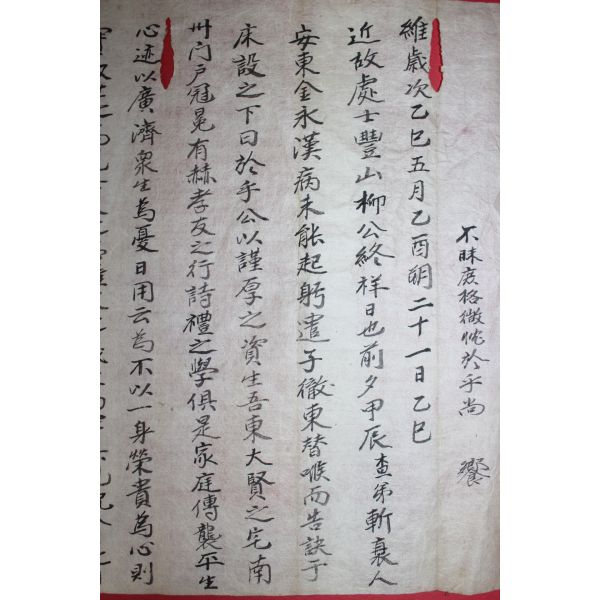 不昧庶格微忱於乎尚 饗
維歲次乙巳五月乙酉朔二十一日乙巳
近故處士豐山柳公終祥日也前夕甲辰查弟斬衰人
安東金永漢病未能起躬遣子徹東替喉而告訣于
床設之下曰於乎公以謹厚之資生吾東大賢之宅南
州门戶冠冕有赫孝友之行詩禮之學俱是家庭傳襲平生
心迹以廣濟衆生為憂日用云為不以一身榮貴為心則